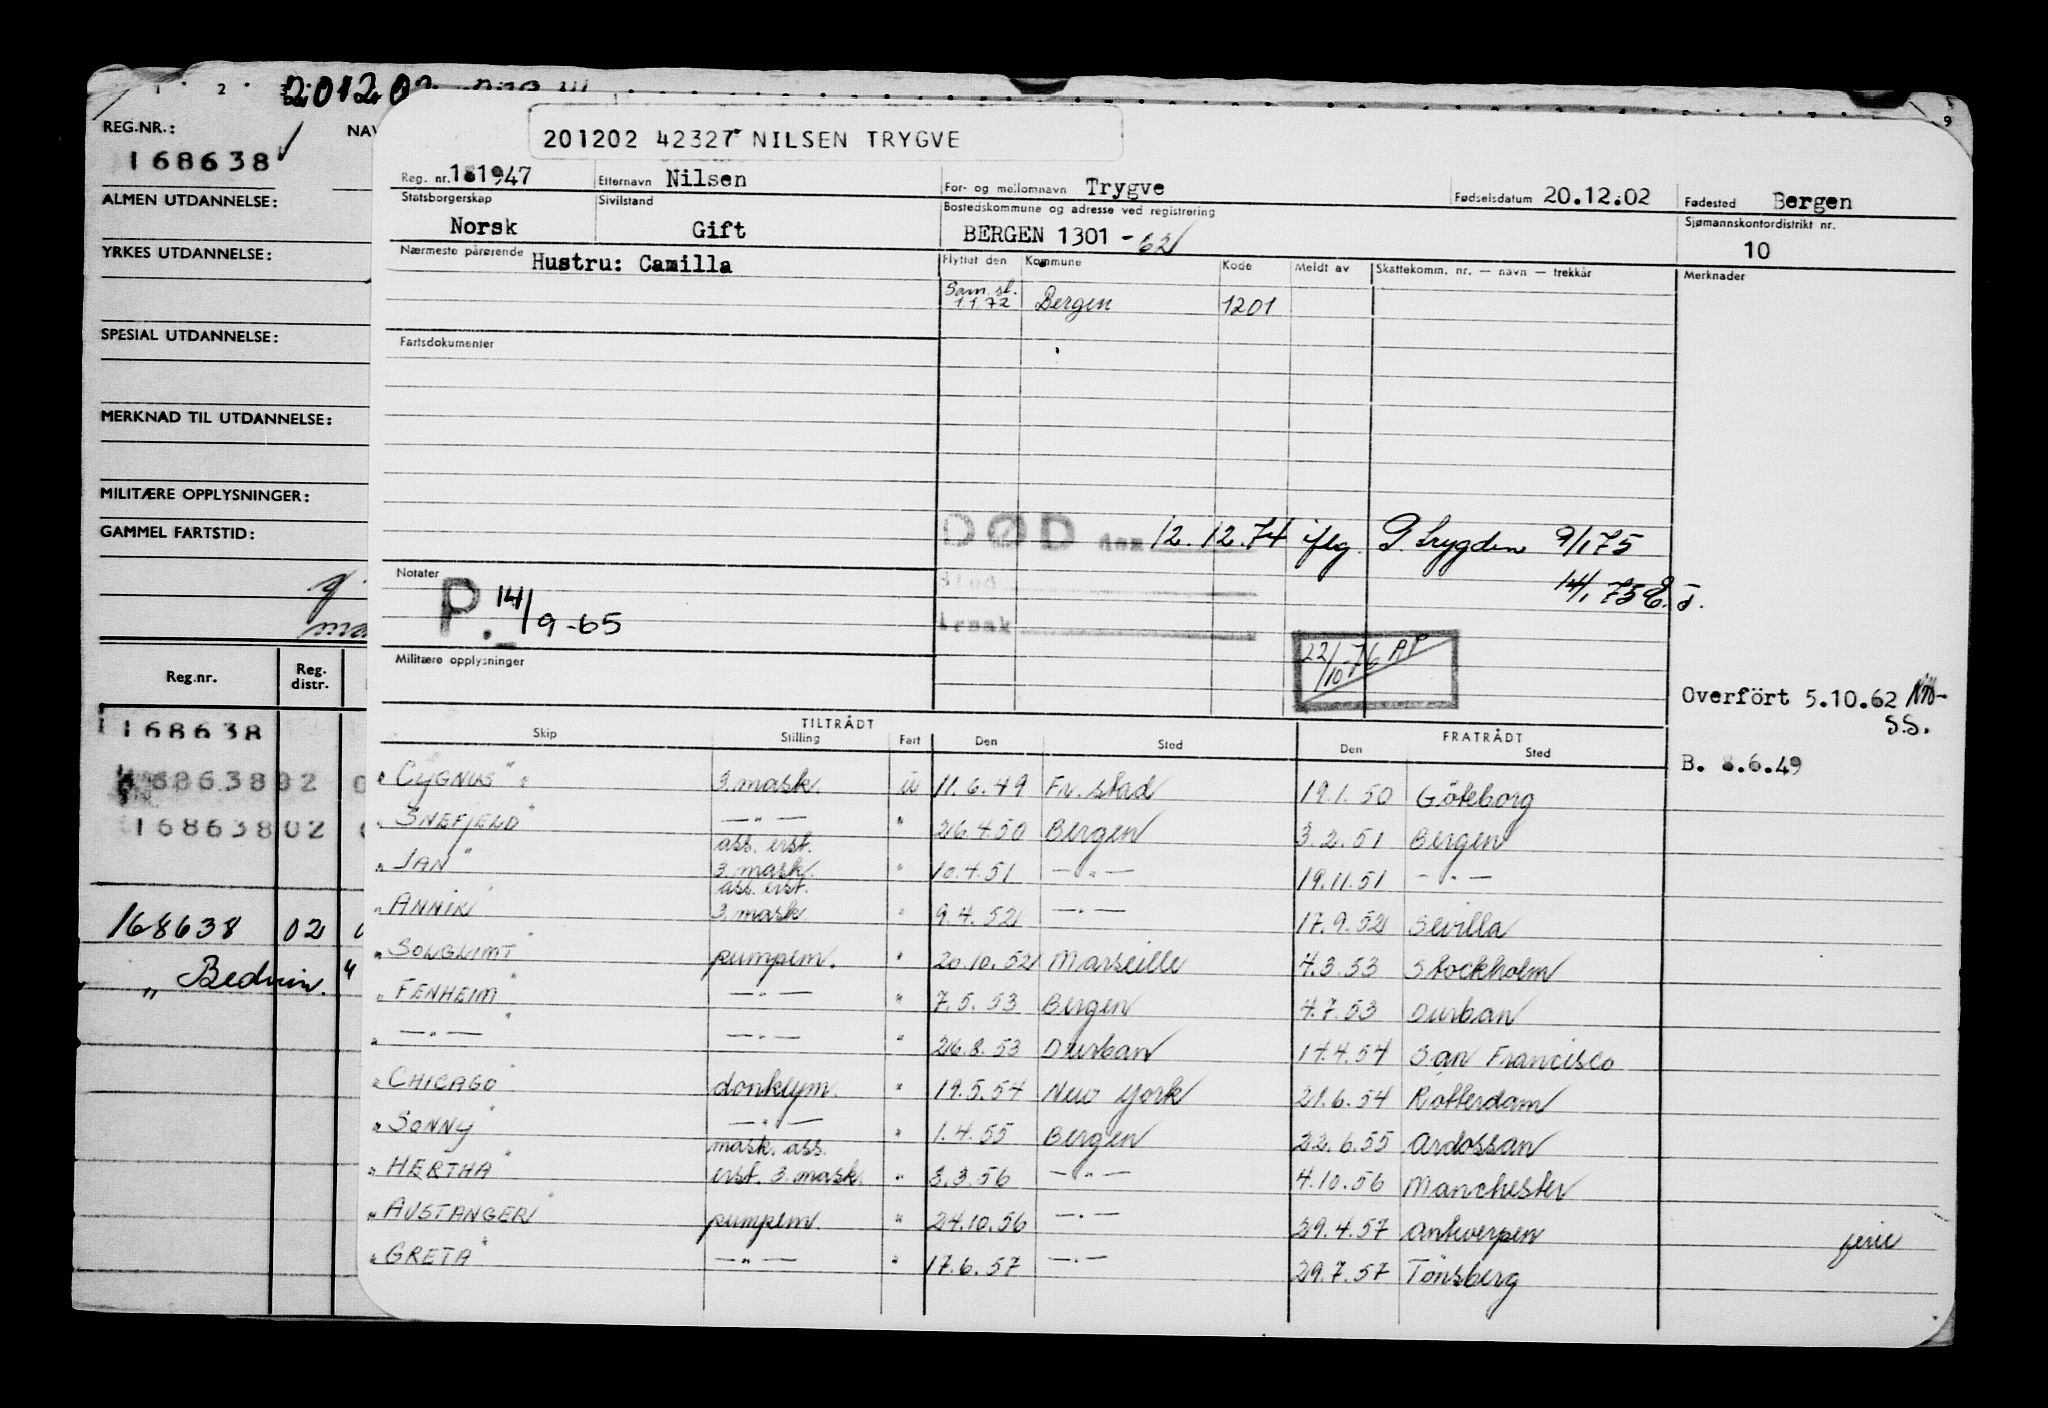 1 2 201202
REG.NR.: NAV
168638 ✓
ALMEN UTDANNELSE:
YRKES UTDANNELSE:
SPESIAL UTDANNELSE:
MERKNAD TIL UTDANNELSE:
MILITÆRE OPPLYSNINGER:
GAMMEL FARTSTID:
Reg.nr. Reg. distr.
168638
16863802
16863802
168638 02
" Beduin. "
9
201202 42327 NILSEN TRYGVE
Reg. nr. 181947 Etternavn Nilsen For- og mellomnavn Trygve Fødselsdatum 20.12.02 Fødested Bergen
Statsborgerskap Sivilstand Bostedskommune og adresse ved registrering Sjømannskontordistrikt nr.
Norsk Gift BERGEN 1301 - 62 10
Nærmeste pårørende Hustru: Camilla Flyttet den Kommune Kode Meldt av Skattekomm. nr. — navn — trekkår Merknader
Sam. sl.
1.1.72 Bergen 1201
Fartsdokumenter
DØD den 12.12.74 iflg. P. Trygden 9/1 75
Notater Sted 14/1 75 E.J.
P. 14/9-65
Årsak
22/10-76 AP
Militære opplysninger
Overfört 5.10.62
S.S.
B. 8.6.49
TILTRÅDT FRATRÅDT
Skip Stilling Fart Den Sted Den Sted
" CYGNUS " 3. mask. u 11.6.49 Fr. stad 19.1.50 Göteborg
" SNEFJELD " —"— " 26.4.50 Bergen 3.2.51 Bergen
ass. erst.
" JAN " 3. mask. " 10.4.51 —"— 19.11.51 —"—
ass. erst.
" ANNIK " 3. mask " 9.4.52 —"— 17.9.52 Sevilla
" SOLGLIMT " pumpem. " 20.10.52 Marseille 4.3.53 Stockholm
" FENHEIM " —"— " 7.5.53 Bergen 4.7.53 Durban
" —"— " —"— " 26.8.53 Durban 14.4.54 San Francisco
" CHICAGO " donkeym. " 19.5.54 New York 21.6.54 Rotterdam
" SONNY " —"— " 1.4.55 Bergen 22.6.55 Ardossan
mask. ass.
" HERTHA " erst. 3. mask. " 3.3.56 —"— 4.10.56 Manchester
" AUSTANGER " pumpem " 24.10.56 —"— 29.4.57 Antwerpen ferie
" GRETA " —"— " 17.6.57 —"— 29.7.57 Tönsberg